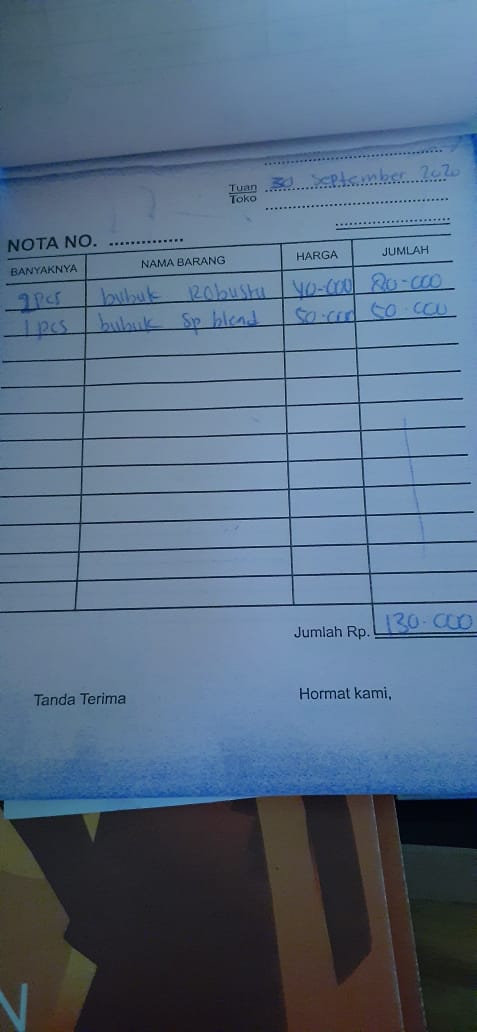 30 September 2020
Tuan
Toko
NOTA NO.
BANYAKNYA NAMA BARANG HARGA JUMLAH
2 pcs bubuk Robusta 40.000 80.000
1 pcs bubuk Sp blend 50.000 50.000
Jumlah Rp. 130.000
Tanda Terima Hormat kami,
N